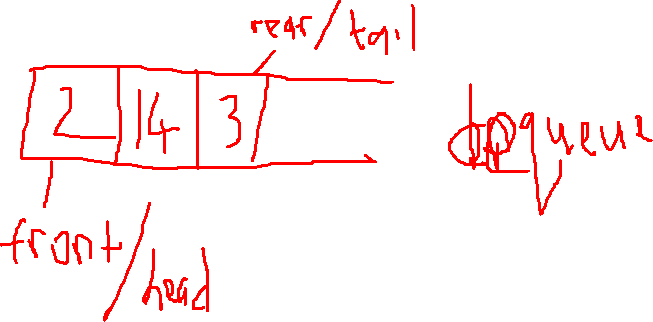 rear/tail
2 14 3
queue
front/
head